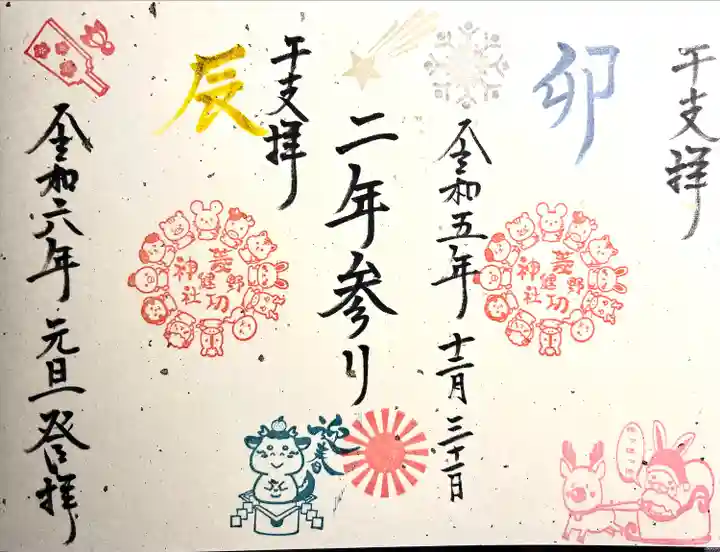 干支拝
卯
令和五年 十二月 三十一日
菱野健功神社
二年参り
迎春
干支拝
辰
菱野健功神社
令和六年 元旦 登拝